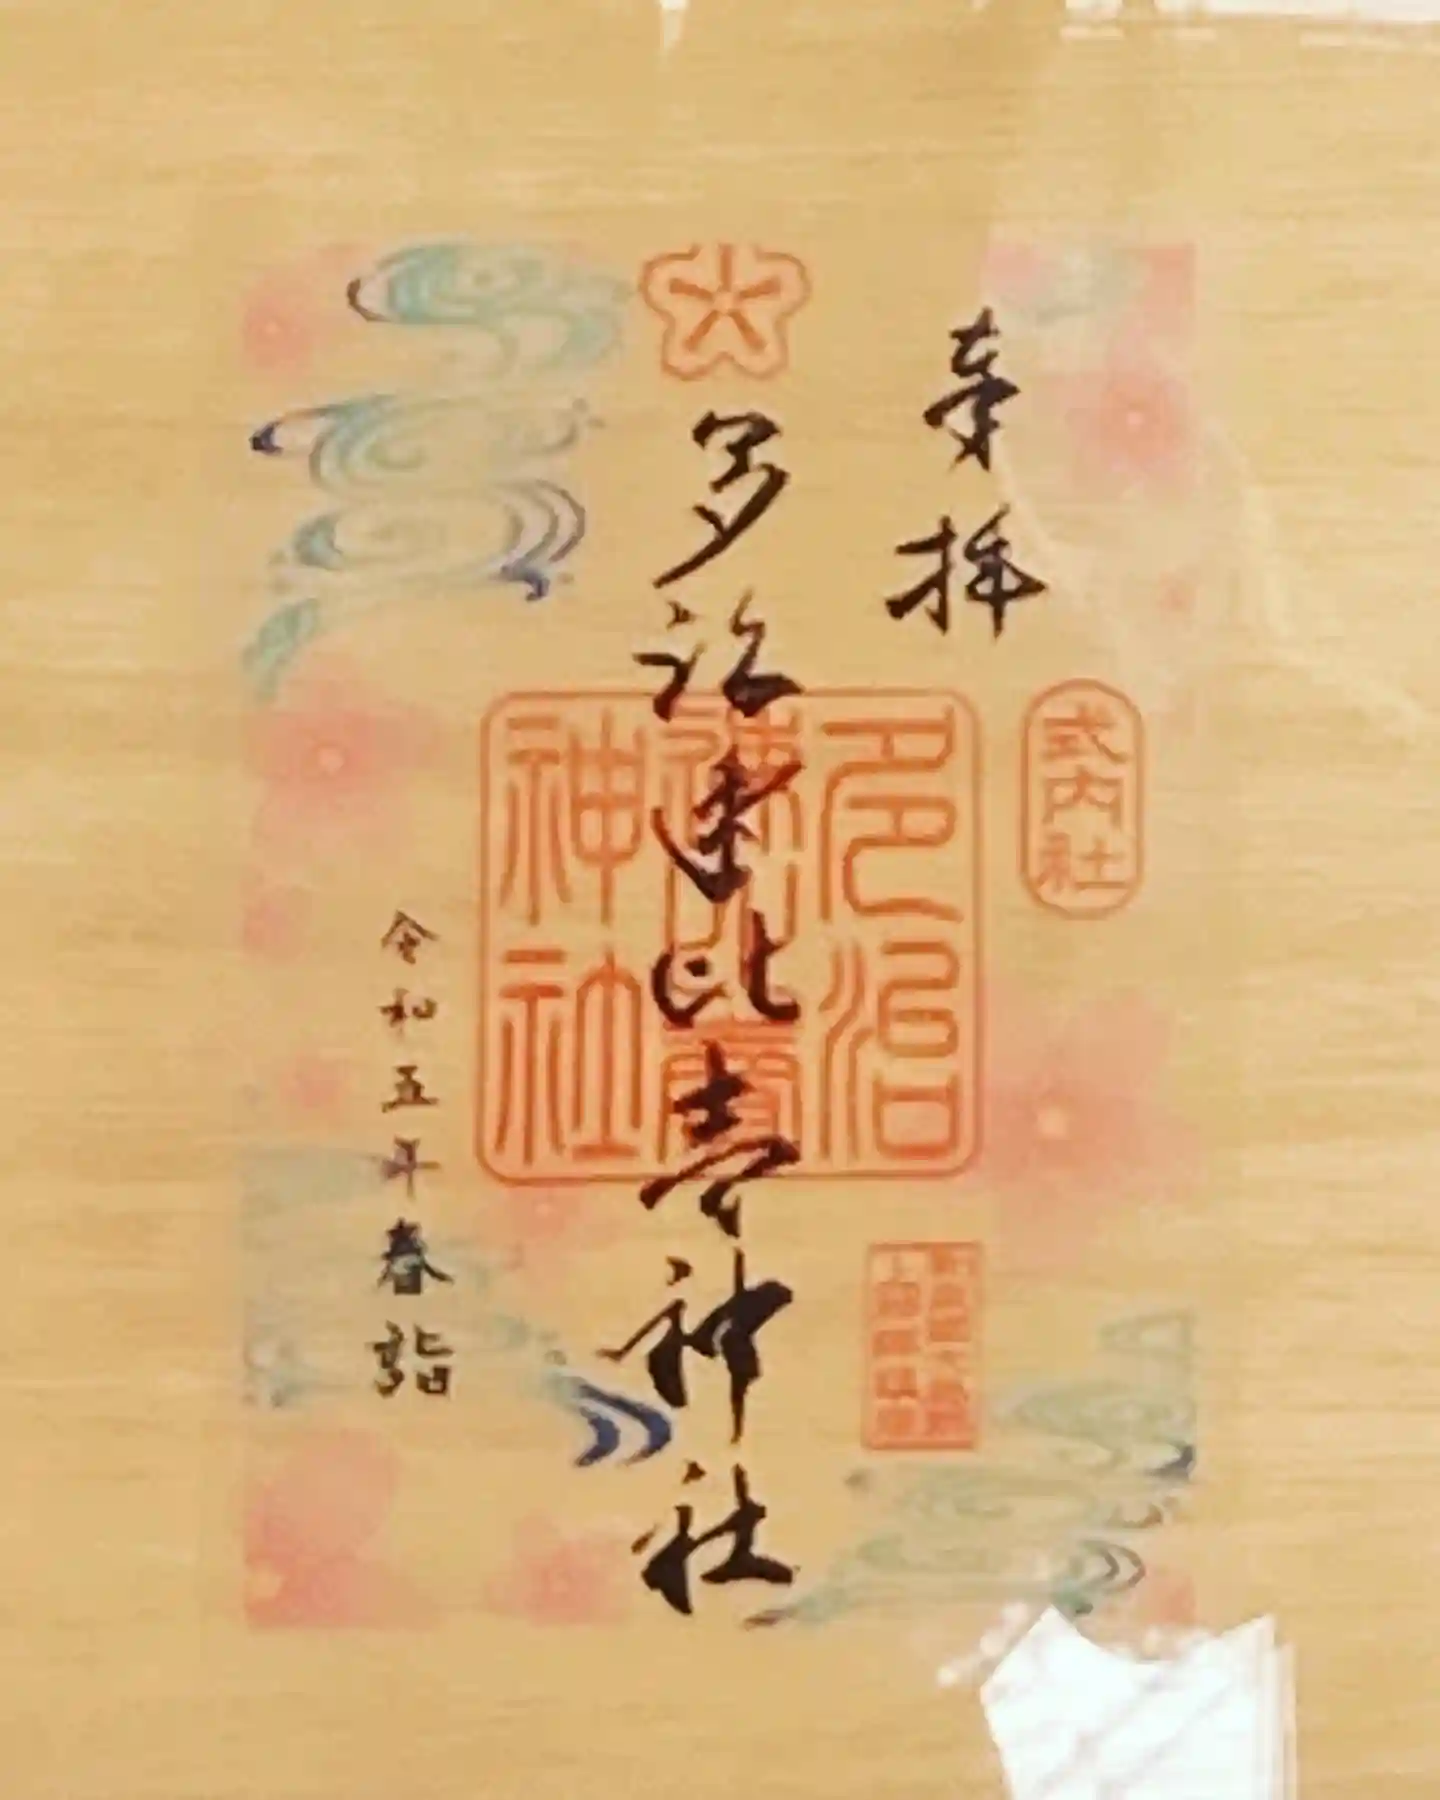 奉拝
式内社
多治速比売神社
多治速比賣神社
令和五年春詣